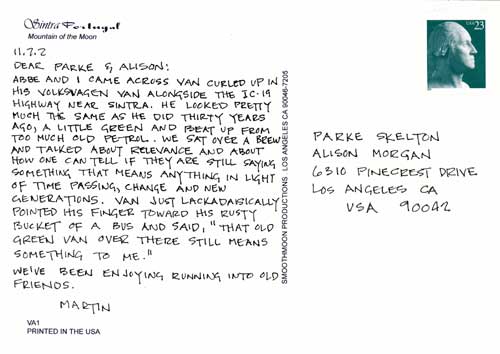 Sintra Portugal
Mountain of the Moon
11.2.2
DEAR PARKE & ALISON:
ABBE AND I CAME ACROSS VAN CURLED UP IN
HIS VOLKSVAGEN VAN ALONGSIDE THE IC-19
HIGHWAY NEAR SINTRA. HE LOOKED PRETTY
MUCH THE SAME AS HE DID THIRTY YEARS
AGO, A LITTLE GREEN AND BEAT UP FROM
TOO MUCH OLD PETROL. WE SAT OVER A BREW
AND TALKED ABOUT RELEVANCE AND ABOUT
HOW ONE CAN TELL IF THEY ARE STILL SAYING
SOMETHING THAT MEANS ANYTHING IN LIGHT
OF TIME PASSING, CHANGE AND NEW
GENERATIONS. VAN JUST LACKADAISICALLY
POINTED HIS FINGER TOWARD HIS RUSTY
BUCKET OF A BUS AND SAID, "THAT OLD
GREEN VAN OVER THERE STILL MEANS
SOMETHING TO ME."
WE'VE BEEN ENJOYING RUNNING INTO OLD
FRIENDS.
MARTIN
VA1
PRINTED IN THE USA
SMOOTHMOON PRODUCTIONS LOS ANGELES CA 90046-7205
USA 23
PARKE SKELTON
ALISON MORGAN
6310 PINECREST DRIVE
LOS ANGELES CA
USA 90042